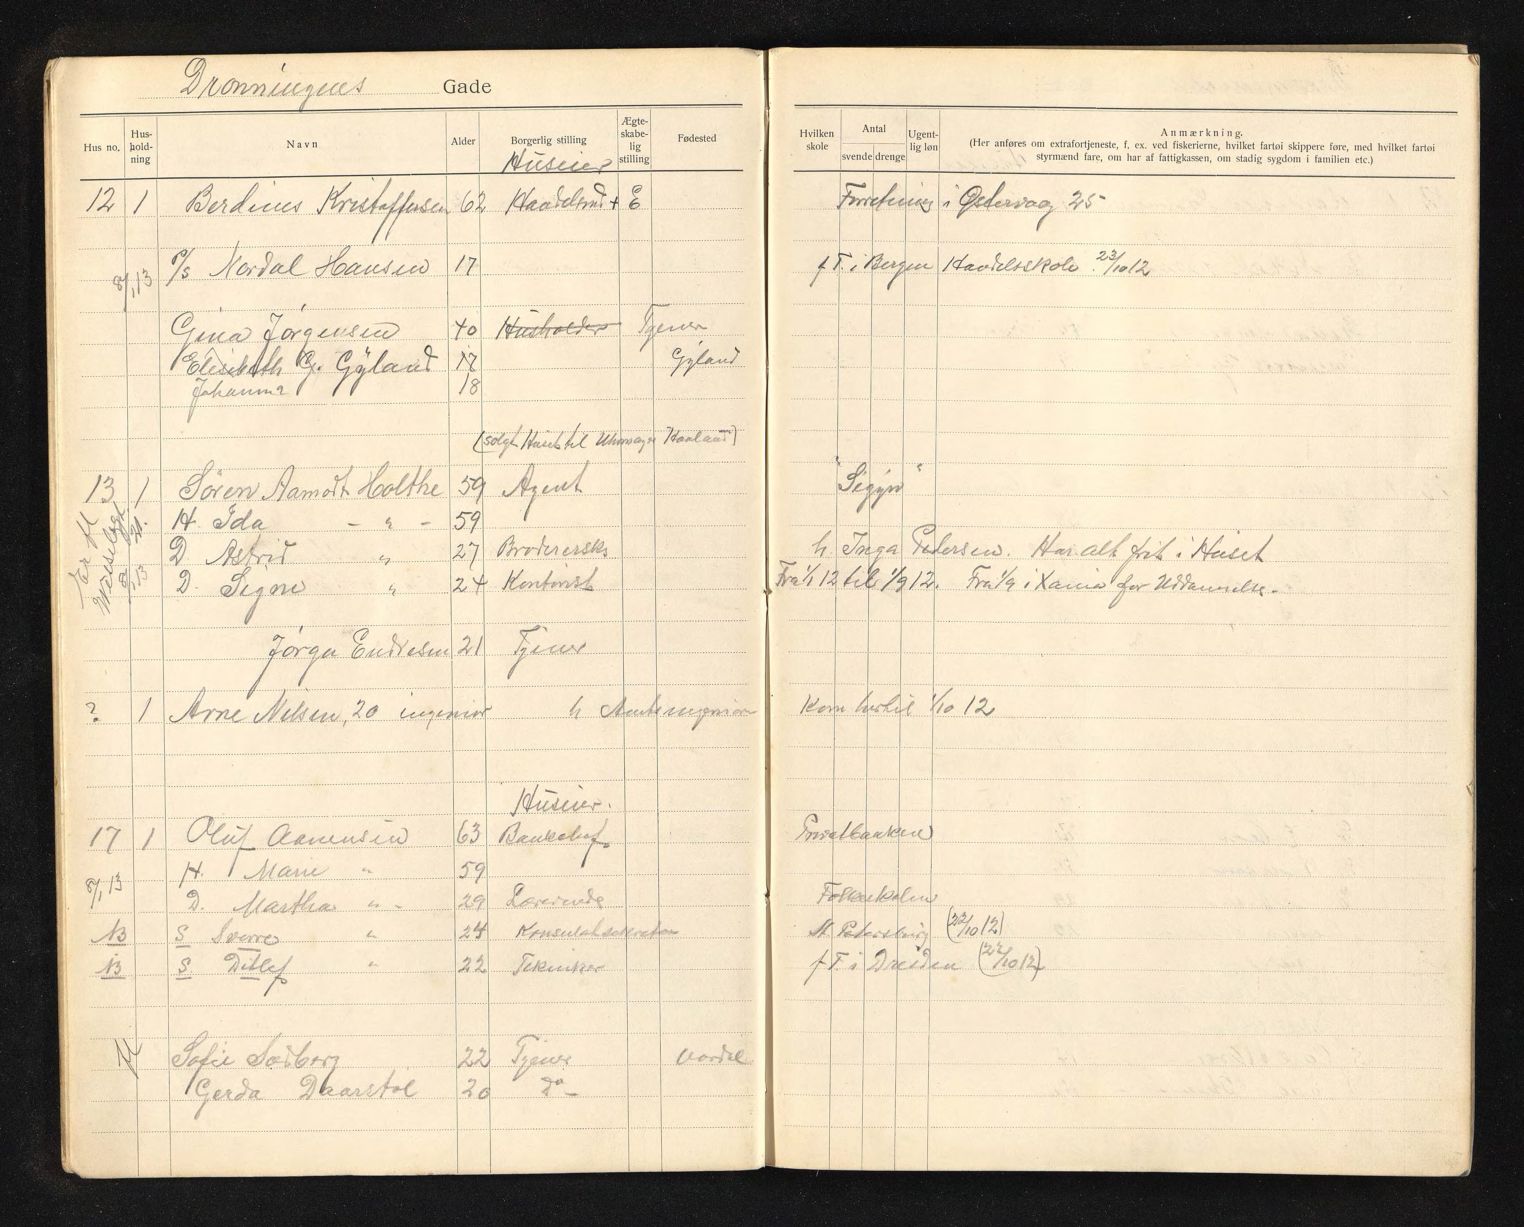 Dronningens Gade
Hus no. Hus-hold-ning Navn Alder Borgerlig stilling Ægte-skabe-lig stilling Fødested Hvilken skole Antal svende drenge Ugent-lig løn Anmærkning.
(Her anføres om extrafortjeneste, f. ex. ved fiskerierne, hvilket fartøi skippere føre, med hvilket fartøi
styrmænd fare, om har af fattigkassen, om stadig sygdom i familien etc.)
Huseier
12 1 Berdines Kristoffersen 62 + E Forretning i Østervaag 25
P/s Nordal Hansen 17 f. T. i Bergen Handelsskole 23/10 12
8/1 13
Gina Jørgensen 40 Husholder Tjener
Elisabeth G. Gyland 17 Gyland
Johanne 18
(solgt Huset til Uhrmager Haaland)
13 1 Søren Aamodt Holthe 59 Agent "Sigyn"
H. Ida - " - 59
D Astrid " 27 Brodererske h. Inga Pedersen. Har alt frit i Huset
D. Signe " 24 Kontorist Fra 1/1 12 til 1/9 12. Fra 1/9 i Xania for Uddannelse.
Jørga Endresen 21 Tjener
? 1 Arne Nilsen, 20 ingeniør h Amtsingeniør Kom hertil 1/10 12
Huseier.
17 1 Oluf Aanensen 63 Bankchef Privatbanken
H. Marie " 59
8/1 13
D. Martha " - 29 Lærerinde Folkeskolen
NB S Sverre " 24 Konsulatsekretær St. Petersburg (22/10 12)
NB S Ditlef " 22 Tekniker f. T. i Dresden (22/10 12)
Sofie Sødberg 22 Tjener
Gerda Daarstøl 20 Do -